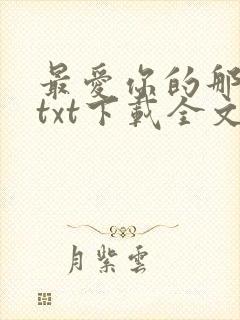 最愛你的那
txt下載全文
月紫雲